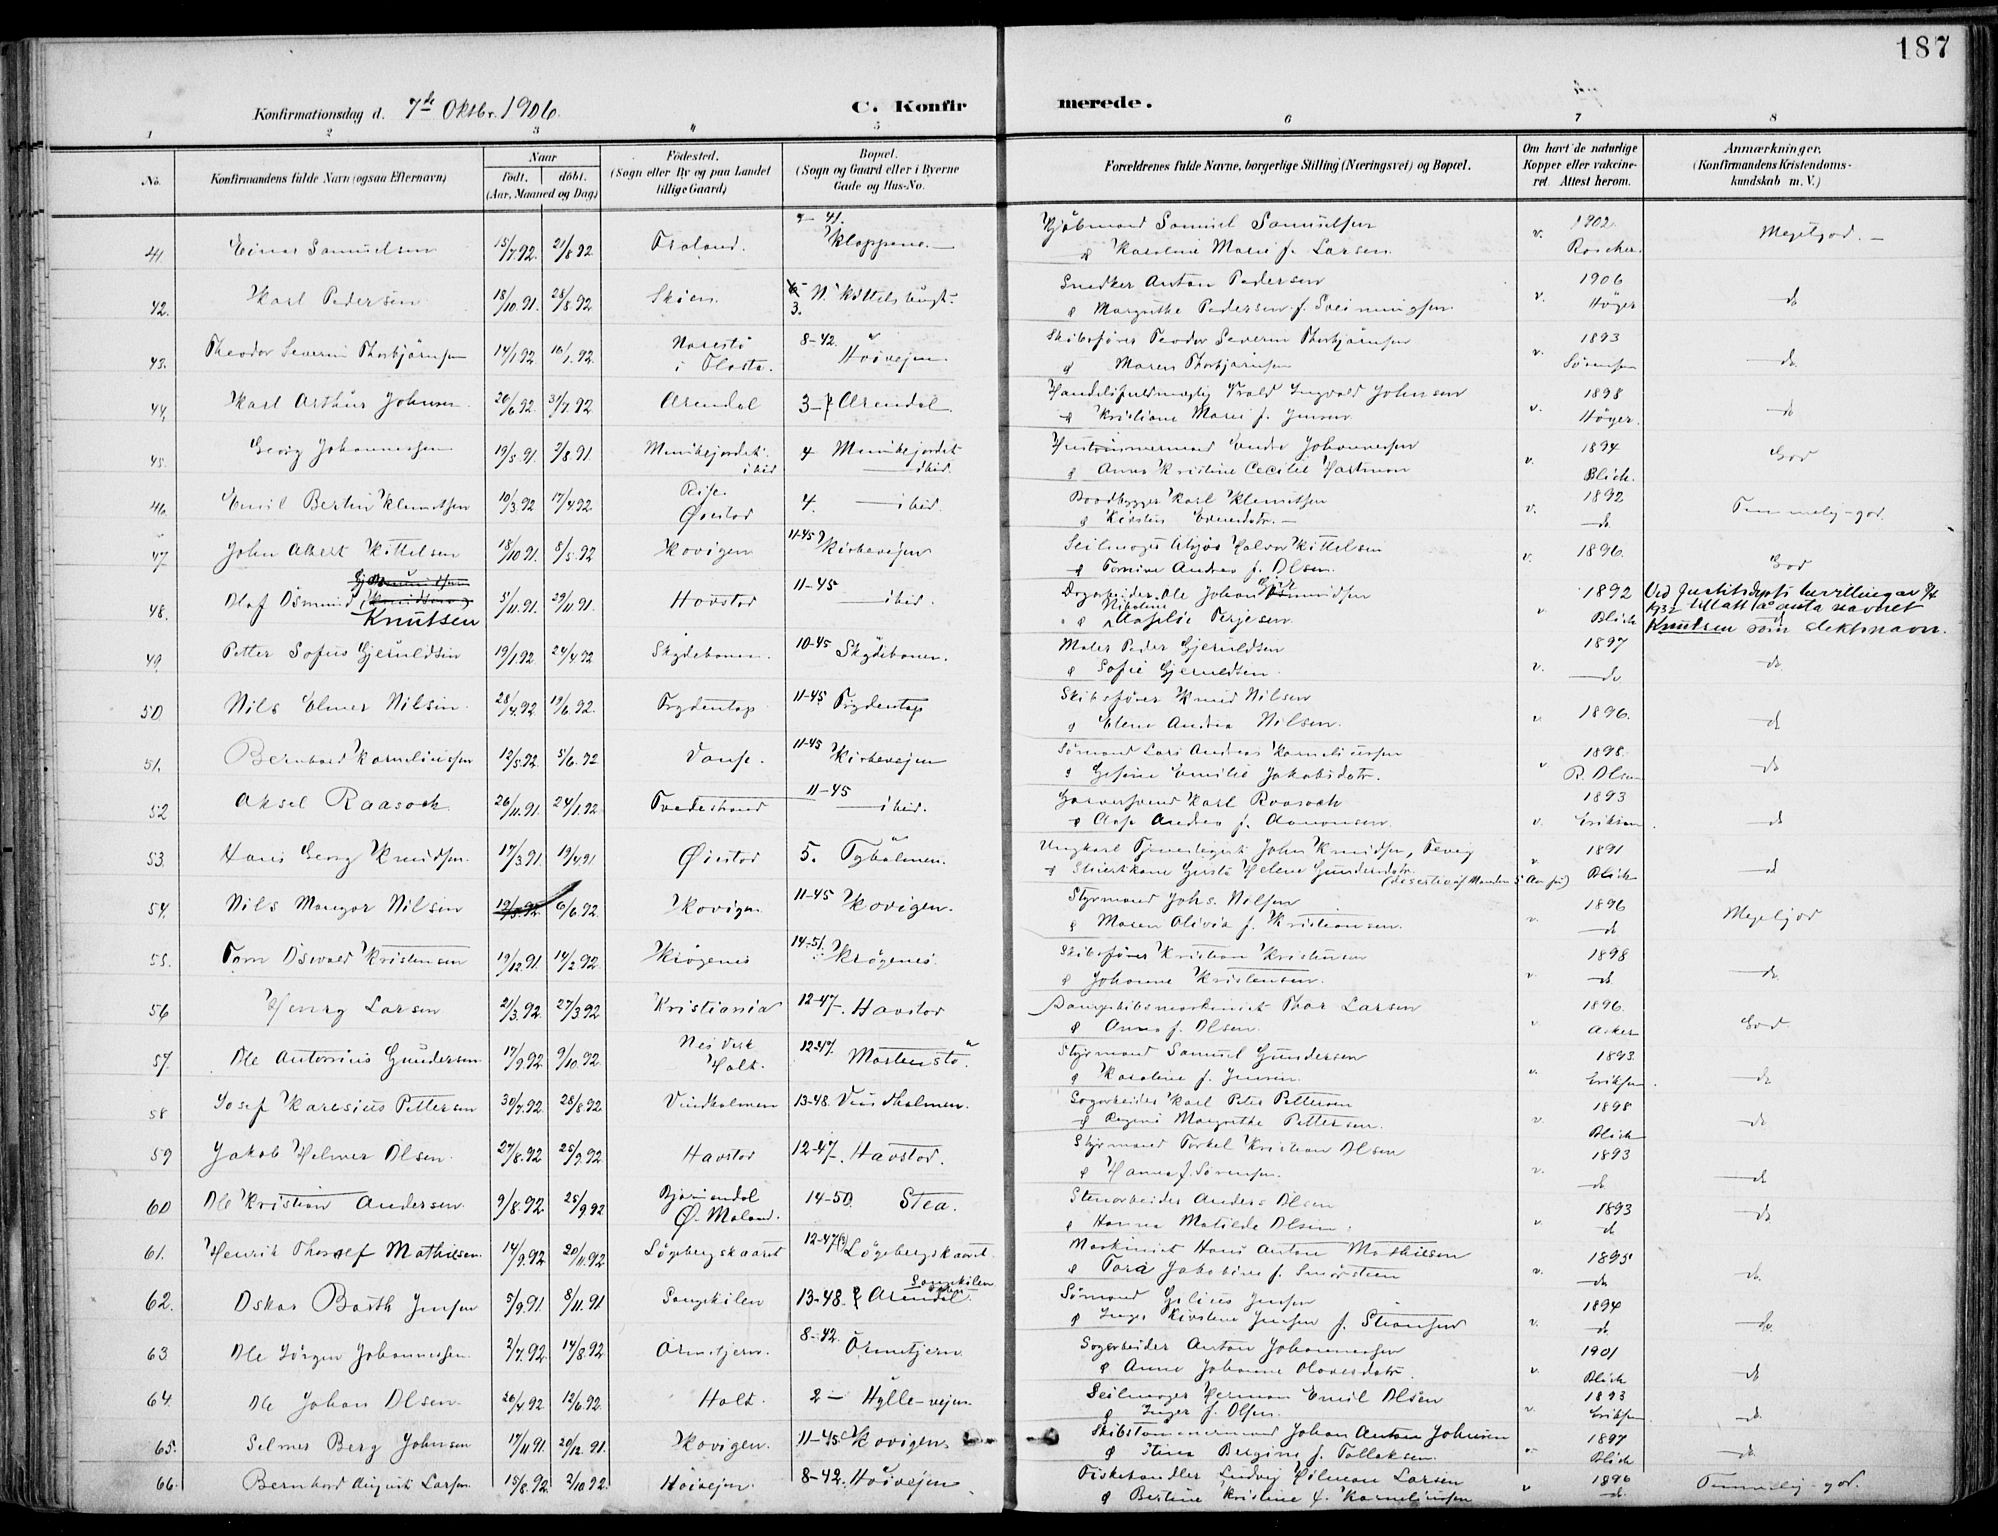 187
Konfirmationsdag d. 7de Oktbr. 1906.
C. Konfirmerede.
1 2 3 4 5 6 7 8
No. Konfirmandens fulde Navn (ogsaa Efternavn) Naar født. døbt. (Aar, Maaned og Dag) Fødested. (Sogn eller By og paa Landet tillige Gaard) Bopæl. (Sogn og Gaard eller i Byerne Gade og Hus-No. Forældrenes fulde Navne, borgerlige Stilling (Næringsvei) og Bopæl. Om havt de naturlige Kopper eller vakcineret. Attest herom. Anmærkninger. (Konfirmandens Kristendomskundskab m. V.)
41. Einar Samuelsen 15/7.92. 21/8.92 Froland. Kloppene. Samuel Samuelsen v. 1902. Megetgod.
& Karoline Marie f. Larsen.
42. Karl Pedersen 18/10.91. 28/8.92 Skien. 3. Snedker Anton Pedersen v. 1906 Höyer do
& Margrethe Pedersen f.
43. Theodor Severin Thorbjørnsen 14/1.92 10/1.92. Narestö i Flosta. 8-42. Höivejen. Skibsfører Teodor Severin Thorbjørnsen v. 1893 Sörensen do
& Maren Thorbjørnsen
44. Karl Arthur Johnsen 20/6.92. 31/7.92 Arendal 3- Arendal Ingvald Johnsen v. 1898 Höyer. do
& Kristiane Marie f. Jensen
45. Georg Johannessen 19/5.91. 2/8.91 Munkejordet ibid 4 Munkejordet ibid. Johannessen v. 1894 Blich. God
& Anne Kristine Cecilie Hartman
46. Emil Bertin Klemetsen 10/3.92 17/4.92 Øiestad 4. ibid. Baadbygger Karl Klemetsen v. 1892 do Temmelig god
47. John Albert Kittelsen 18/10.91. 8/5.92 Kovigen 11-45 Kirkevejen Halvor Kittelsen v. 1896. God
& Tomine Andrea f. Olsen.
48. Olaf Osmund Knutsen 5/11.91. 29/11.91. Havstad 11-45 ibid. Dagarbeider Ole Johan v. 1892 Blich Ved Justitsdepts bevilling av 1932 tillatt å anta navnet Knutsen som slektsnavn.
& Nikoline Aaselie Terjesen. do
49. Petter Sofus Gjeruldsen 19/1.92 24/4.92 Skydebanen. 10-45 Skydebanen. Maler Peder Gjeruldsen v. 1897 do do
& Sofie Gjeruldsen.
50 Nils Elmer Nilsen. 28/4.92 19/6.92. Frydentop 11-45 Frydentop Skibsfører Knud Nilsen v. 1896. do
& Elene Andrea Nilsen.
51. Bernhard Korneliussen 12/5.92. 5/6.92 Vanse. 11-45 Kirkevejen Sømand Lars Andreas Korneliussen v 1898. R. Olsen do
& Gesine Emilie Jakobsdatr.
52 Aksel Raasoch 26/11.91. 24/1.92 Tvedestrand 11-45 ibid. Garversvend Karl Raasoch v. 1893 Eriksen. do
& Aase Andrea f. Aamonsen
53. Hans Georg Knudsen. 17/3.91. 19/4.91 Øiestad 5. Tyholmen. Ungkarl John Knudsen, Fevig v. 1891 Blich do
& Helene Gundersdatr. (deserted af Manden 5 Aar før)
54. Nils Mangor Nilsen 12/5.92 6/6.92. Kovigen 11-45 Kovigen. Styrmand Johs. Nilsen v. 1896 do Megetgod
& Maren Olivia f. Kristiansen.
55. Tom Osvald Kristensen 19/12.91. 14/2.92. Krögenes 14-51. Krögenes. Skibsfører Kristian Kristensen v. 1898 do do
& Johanne Kristensen.
56 Henry Larsen 21/3.92. 27/3.92 Kristiania 12-47. Havstad Dampskibsmaskinist Thor Larsen v 1896. Asker God
& Anna f. Olsen.
57. Ole Antonius Gundersen 17/9.92 9/10.92. Nes Verk Holt. 12-47. Mortenstö. Styrmand Samuel Gundersen v. 1893. Eriksen. do
& Karoline f. Jensen.
58 Josef Karesius Pettersen 30/7.92. 28/8.92 Vindholmen 13-48. Vindholmen. Sagarbeider Karl Peter Pettersen v. 1898 Blich do
& Regine Margrethe Pettersen.
59 Jakob Helmer Olsen. 27/8.92 25/9.92 Havstad 12-47. Havstad. Styrmand Torkel Kristian Olsen v. 1893 do do
& Hanna f. Sørensen.
60 Ole Kristian Andersen. 9/8.92. 25/9.92 Ø. Moland. 14-50. Stea. Stenarbeider Anders Olsen v. 1893 do do
& Hanna Matilde Olsen.
61. Henrik Tholef Mathisen. 14/9.92 20/11.92 Lögebergskaaret 12-47 Lögebergskaaret Maskinist Hans Anton Mathisen v. 1895 do do.
& Tora Jakobine f. Smörsteen
62. Oskar Barth Jensen 5/9.91 8/11.91 Songekilen 13-48. Songekilen Arendal. Sömand Jensen v. 1894 do do.
& Inger Kirstine Jensen f.
63. Ole Jörgen Johannessen. 2/7.92. 14/8.92. Ormetjern. 8-42. Ormetjern Sagarbeider Anton Johannessen v. 1901 Blich do
& Anne Johanne Olavesdatr.
64. Ole Johan Olsen 20/4.92 12/6.92. Holt. 2- Hylle-vejen Seilmager Herman Emil Olsen v. 1893 Eriksen do.
& Inger f. Olsen.
65. Selmer Berg Johnsen 17/11.91. 20/12.91. Kovigen. 11-45 Kovigen. Skibstømmermand Johan Anton Johnsen v. 1897 Blich do
& Stina Bergine f. Tallaksen.
66. Bernhard August Larsen. 15/8.92. 2/10.92. Höivejen. 8-42. Höivejen Fiskehandler Ludvig Hilman Larsen v 1896 do. Temmelig god.
& Bertine Kristine f. Korneliussen